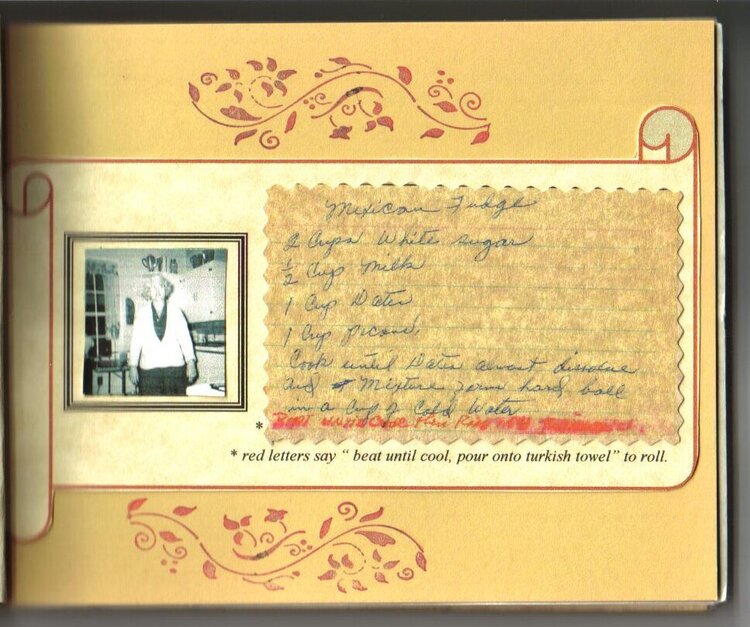 Mexican Fudge
2 Cups White sugar
1/2 Cup Milk
1 Cup Dates
1 Cup pecans
Cook until Dates almost dissolve
and Mixture form hard ball
in a Cup of Cold Water
* Beat until Cool
* red letters say “ beat until cool, pour onto turkish towel” to roll.